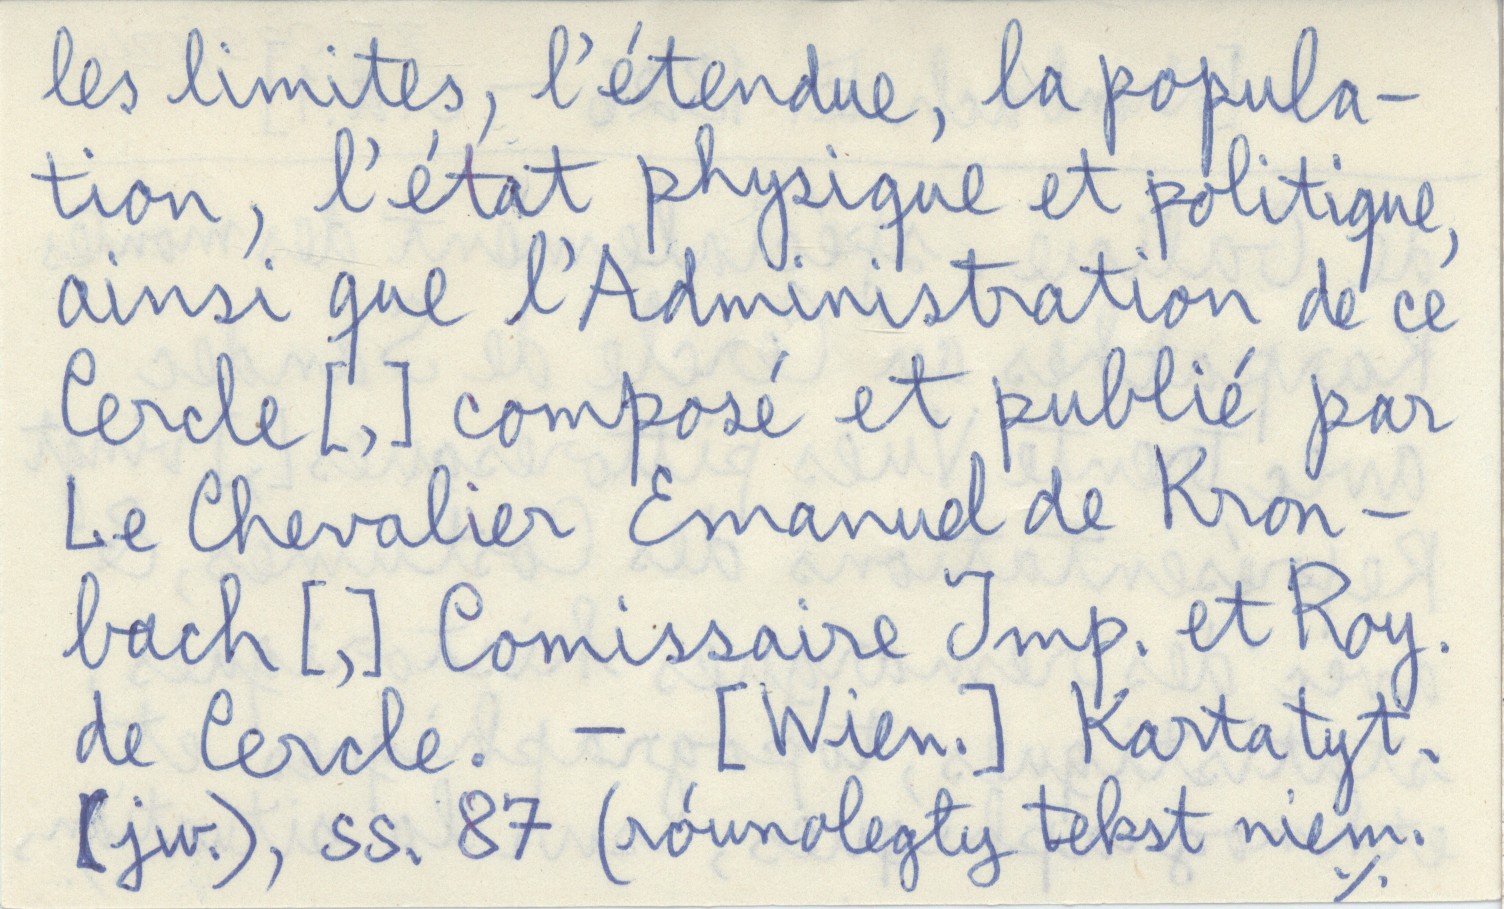 les limites, l'étendue, la popula-
tion, l'état physique et politique,
ainsi que l'Administration de ce
Cercle [,] composé et publié par
Le Chevalier Emanuel de Kron-
bach [,] Comissaire Imp. et Roy.
de Cercle. — [Wien.] Kartatyt.
(jw.), ss. 87 (równoległy tekst niem.
./.